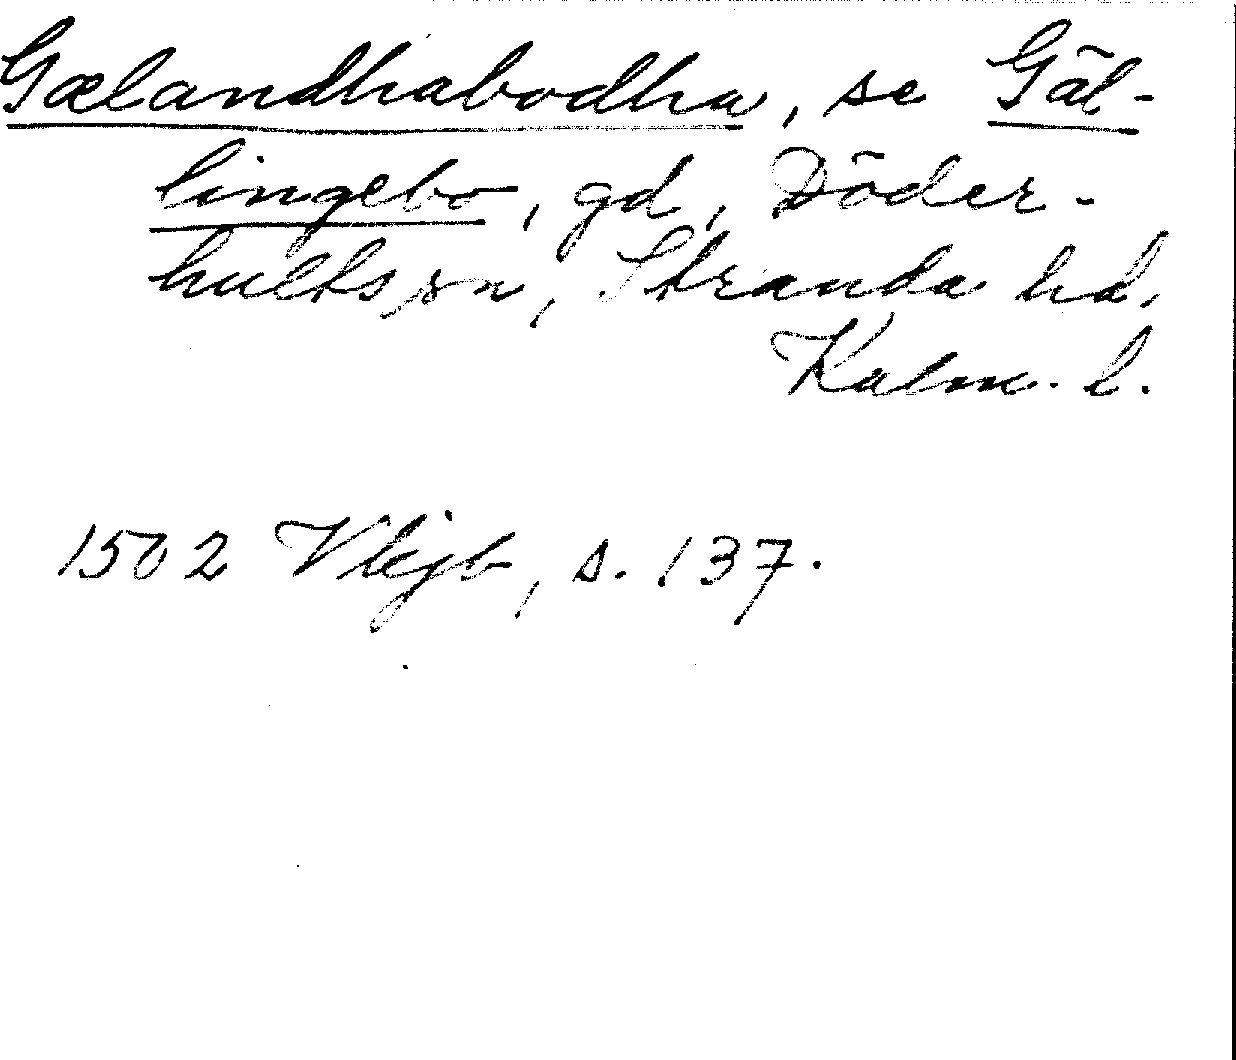 Gælandhabodha, se Gäl-
lingebo, gd, Döder-
hults sn, Stranda hd,
Kalm. l.
1502 Vkjb, s. 137.